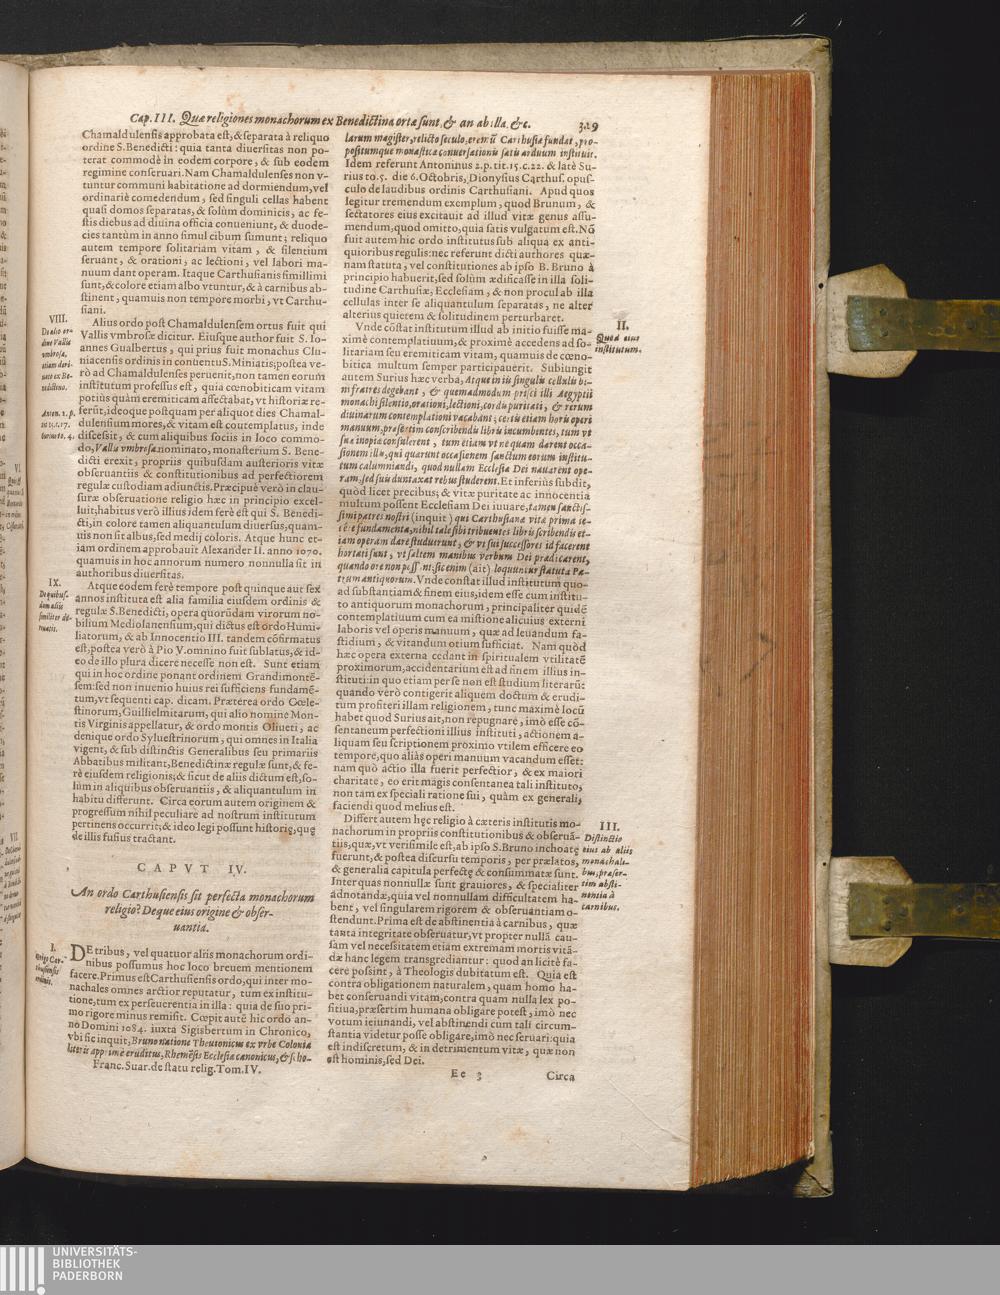 Cap. III. Quæ religiones monachorum ex Benedictina ortæ sunt, & an ab illa, &c. 329
Chamaldulensis approbata est, & separata à reliquo
ordine S. Benedicti: quia tanta diuersitas non po-
terat commodè in eodem corpore, & sub eodem
regimine conseruari. Nam Chamaldulenses non v-
tuntur communi habitatione ad dormiendum, vel
ordinariè comedendum, sed singuli cellas habent
quasi domos separatas, & solùm dominicis, ac fe-
stis diebus ad diuina officia conueniunt, & duode-
cies tantùm in anno simul cibum sumunt; reliquo
autem tempore solitariam vitam, & silentium
seruant, & orationi, ac lectioni, vel labori ma-
nuum dant operam. Itaque Carthusianis simillimi
sunt, & colore etiam albo vtuntur, & à carnibus ab-
stinent, quamuis non tempore morbi, vt Carthu-
siani.
VIII.
De alio or-
dine Vallis
vmbrosa,
etiam deri-
uato ex Be-
nedictino.
Alius ordo post Chamaldulensem ortus fuit qui
Vallis vmbrosæ dicitur. Eiusque author fuit S. Io-
annes Gualbertus, qui prius fuit monachus Clu-
niacensis ordinis in conuentu S. Miniatis; postea ve-
rò ad Chamaldulenses peruenit, non tamen eorum
institutum professus est, quia cœnobiticam vitam
potiùs quàm eremiticam affectabat, vt historiæ re-
Anton. 2. p.
tit. 15. c. 17.
Surius to. 4.
ferūt, ideoque postquam per aliquot dies Chamal-
dulensium mores, & vitam est contemplatus, inde
discessit, & cum aliquibus sociis in loco commo-
do, Vallis vmbrosa nominato, monasterium S. Bene-
dicti erexit, propriis quibusdam austerioris vitæ
obseruantiis & constitutionibus ad perfectiorem
regulæ custodiam adiunctis. Præcipuè verò in clau-
suræ obseruatione religio hæc in principio excel-
luit; habitus verò illius idem ferè est qui S. Benedi-
cti, in colore tamen aliquantulum diuersus, quam-
uis non sit albus, sed medij coloris. Atque hunc et-
iam ordinem approbauit Alexander II. anno 1070.
quamuis in hoc annorum numero nonnulla sit in
authoribus diuersitas.
IX.
De quibus-
dam aliis
similiter de-
riuatis.
Atque eodem ferè tempore post quinque aut sex
annos instituta est alia familia eiusdem ordinis &
regulæ S. Benedicti, opera quorūdam virorum no-
bilium Mediolanensium, qui dictus est ordo Humi-
liatorum, & ab Innocentio III. tandem cōfirmatus
est, postea verò à Pio V. omnino fuit sublatus, & id-
eo de illo plura dicere necesse non est. Sunt etiam
qui in hoc ordine ponant ordinem Grandimontē-
sem: sed non inuenio huius rei sufficiens fundamē-
tum, vt sequenti cap. dicam. Præterea ordo Cœle-
stinorum, Guillielmitarum, qui alio nomine Mon-
tis Virginis appellatur, & ordo montis Oliueti, ac
denique ordo Syluestrinorum, qui omnes in Italia
vigent, & sub distinctis Generalibus seu primariis
Abbatibus militant, Benedictinæ regulæ sunt, & fe-
rè eiusdem religionis; & sicut de aliis dictum est, so-
lùm in aliquibus obseruantiis, & aliquantulum in
habitu differunt. Circa eorum autem originem &
progressum nihil peculiare ad nostrum institutum
pertinens occurrit; & ideo legi possunt historię, quę
de illis fusius tractant.
CAPVT IV.
An ordo Carthusiensis sit perfecta monachorum
religio? Deque eius origine & obser-
uantia.
I.
Origo Car-
thusiensis
ordinis.
DE tribus, vel quatuor aliis monachorum ordi-
nibus possumus hoc loco breuem mentionem
facere. Primus est Carthusiensis ordo, qui inter mo-
nachales omnes arctior reputatur, tum ex institu-
tione, tum ex perseuerentia in illa: quia de suo pri-
mo rigore minus remisit. Cœpit autē hic ordo an-
no Domini 1084. iuxta Sigisbertum in Chronico,
vbi sic inquit, Bruno natione Theutonicus ex vrbe Colonia
literis apprimè eruditus, Rhemēsis Ecclesiæ canonicus, & scho-
Franc. Suar. de statu relig. Tom. IV.
larum magister, relicto seculo, eremū Carthusiæ fundat, pro-
positumque monasticæ conuersationis satis arduum instituit.
Idem referunt Antoninus 2. p. tit. 15. c. 22. & latè Su-
rius to. 5. die 6. Octobris, Dionysius Carthus. opus-
culo de laudibus ordinis Carthusiani. Apud quos
legitur tremendum exemplum, quod Brunum, &
sectatores eius excitauit ad illud vitæ genus assu-
mendum, quod omitto, quia satis vulgatum est. Nō
fuit autem hic ordo institutus sub aliqua ex anti-
quioribus regulis: nec referunt dicti authores quæ-
nam statuta, vel constitutiones ab ipso B. Bruno à
principio habuerit, sed solùm ædificasse in illa soli-
tudine Carthusiæ, Ecclesiam, & non procul ab illa
cellulas inter se aliquantulum separatas, ne alter
alterius quietem & solitudinem perturbaret.
II.
Quod eius
institutum.
Vnde cōstat institutum illud ab initio fuisse ma-
ximè contemplatiuum, & proximè accedens ad so-
litariam seu eremiticam vitam, quamuis de cœno-
bitica multum semper participauerit. Subiungit
autem Surius hæc verba, Atque in iis singulis cellulis bi-
ni fratres degebant, & quemadmodum prisci illi Aegyptii
monachi silentio, orationi, lectioni, cordis puritati, & rerum
diuinarum contemplationi vacabant; certis etiam horis operi
manuum, præsertim conscribendis libris incumbentes, tum vt
suæ inopiæ consulerent, tum etiam vt ne quam darent occa-
sionem illis, qui quærunt occasionem sanctum eorum institu-
tum calumniandi, quod nullam Ecclesiæ Dei nauarent ope-
ram, sed suis duntaxat rebus studerent. Et inferius subdit,
quòd licet precibus; & vitæ puritate ac innocentia
multum possent Ecclesiam Dei iuuare, tamen sanctis-
simi patres nostri (inquit) qui Carthusianæ vitæ prima ie-
cēre fundamenta, nihil tale sibi tribuentes libris scribendis et-
iam operam dare studuerunt, & vt sui successores id facerent
hortati sunt, vt saltem manibus verbum Dei prædicarent,
quando ore non possent: sic enim (ait) loquuntur statuta Pa-
trum antiquorum. Vnde constat illud institutum quo-
ad substantiam & finem eius, idem esse cum institu-
to antiquorum monachorum, principaliter quidē
contemplatiuum cum ea mistione alicuius externi
laboris vel operis manuum, quæ ad leuandum fa-
stidium, & vitandum otium sufficiat. Nam quòd
hæc opera externa cedant in spiritualem vtilitatē
proximorum, accidentarium est ad finem illius in-
stituti: in quo etiam per se non est studium literarū:
quando verò contigerit aliquem doctum & erudi-
tum profiteri illam religionem, tunc maximè locū
habet quod Surius ait, non repugnare, imò esse cō-
sentaneum perfectioni illius instituti, actionem a-
liquam seu scriptionem proximo vtilem efficere eo
tempore, quo aliàs operi manuum vacandum esset:
nam quò actio illa fuerit perfectior, & ex maiori
charitate, eo erit magis consentanea tali instituto,
non tam ex speciali ratione sui, quàm ex generali,
faciendi quod melius est.
III.
Distinctio
eius ab aliis
monachali-
bus, præser-
tim absti-
nentia à
carnibus.
Differt autem hęc religio à cæteris institutis mo-
nachorum in propriis constitutionibus & obseruā-
tiis, quæ, vt verisimile est, ab ipso S. Bruno inchoatę
fuerunt, & postea discursu temporis, per prælatos,
& generalia capitula perfectę & consummatæ sunt.
Inter quas nonnullæ sunt grauiores, & specialiter
adnotandæ, quia vel nonnullam difficultatem ha-
bent, vel singularem rigorem & obseruantiam o-
stendunt. Prima est de abstinentia à carnibus, quæ
tanta integritate obseruatur, vt propter nullā cau-
sam vel necessitatem etiam extremam mortis vitā-
dæ hanc legem transgrediantur: quod an licitè fa-
cere possint, à Theologis dubitatum est. Quia est
contra obligationem naturalem, quam homo ha-
bet conseruandi vitam, contra quam nulla lex po-
sitiua, præsertim humana obligare potest, imò nec
votum ieiunandi, vel abstinendi cum tali circum-
stantia videtur posse obligare, imò nec seruari: quia
est indiscretum, & in detrimentum vitæ, quæ non
est hominis, sed Dei.
Ee 3 Circa
UNIVERSITÄTS-
BIBLIOTHEK
PADERBORN